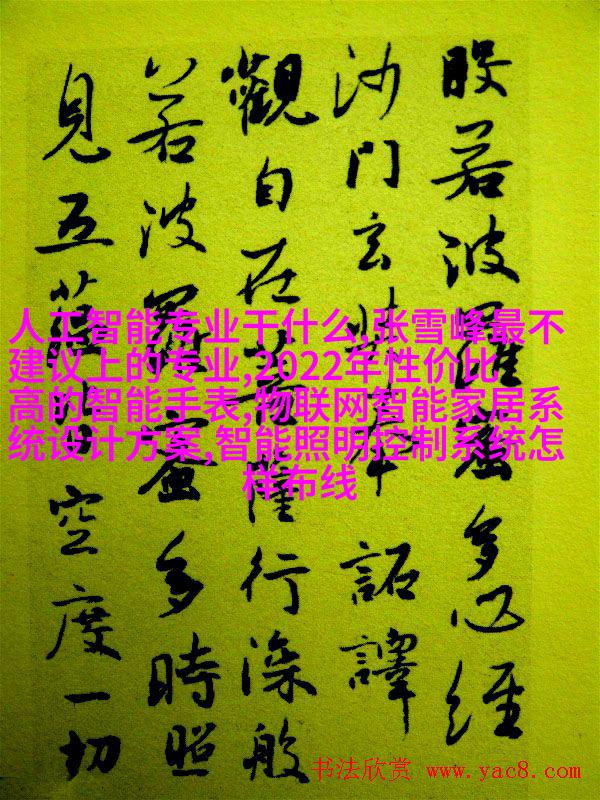 般若波羅蜜多心經
沙門玄奘奉詔譯
觀自在菩薩行深般
若波羅蜜多時照
見五蘊皆空度一切
人工智能专业干什么,张雪峰最不
建议上的专业,2022年性价比
高的智能手表,物联网智能家居系
统设计方案,智能照明控制系统怎
样布线
书法欣赏 www.yac8.com